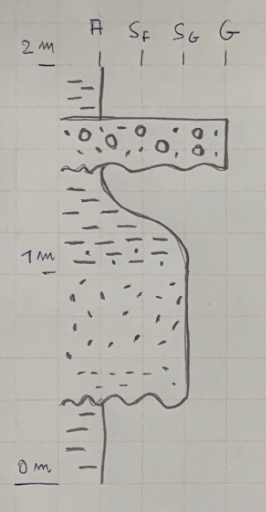 A SF SG G
2 m
1 m
0 m